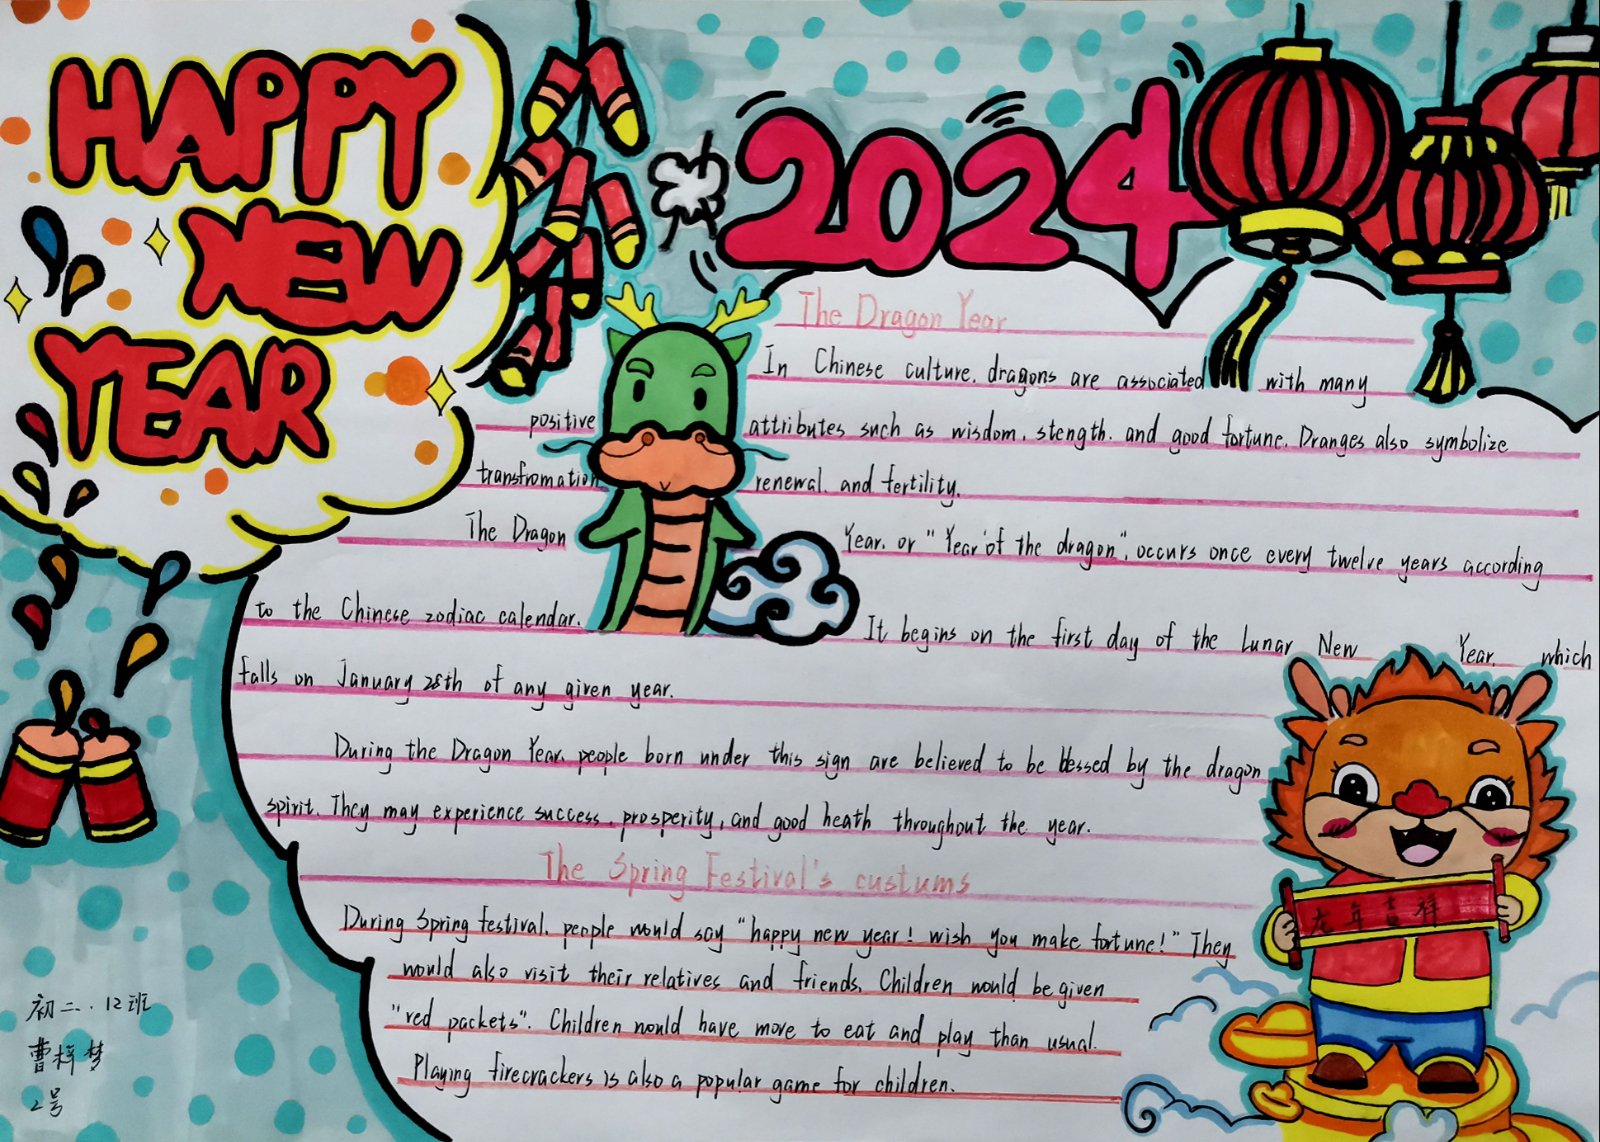 HAPPY
NEW
YEAR
2024
The Dragon Year
In Chinese culture, dragons are associated with many
positive attributes such as wisdom, stength, and good fortune. Dranges also symbolize
transfromation renewal, and fertility.
The Dragon Year, or "Year of the dragon", occurs once every twelve years according
to the Chinese zodiac calendar. It begins on the first day of the Lunar New Year, which
falls on January 28th of any given year.
During the Dragon Year, people born under this sign are believed to be blessed by the dragon
spirit. They may experience success, prosperity, and good heath throughout the year.
The Spring Festival's custums
During Spring festival, people would say "happy new year! wish you make fortune!" They
would also visit their relatives and friends. Children would be given
"red packets". Children would have move to eat and play than usual.
Playing firecrackers is also a popular game for children.
龙年吉祥
初二.12班
曹梓梦
2号